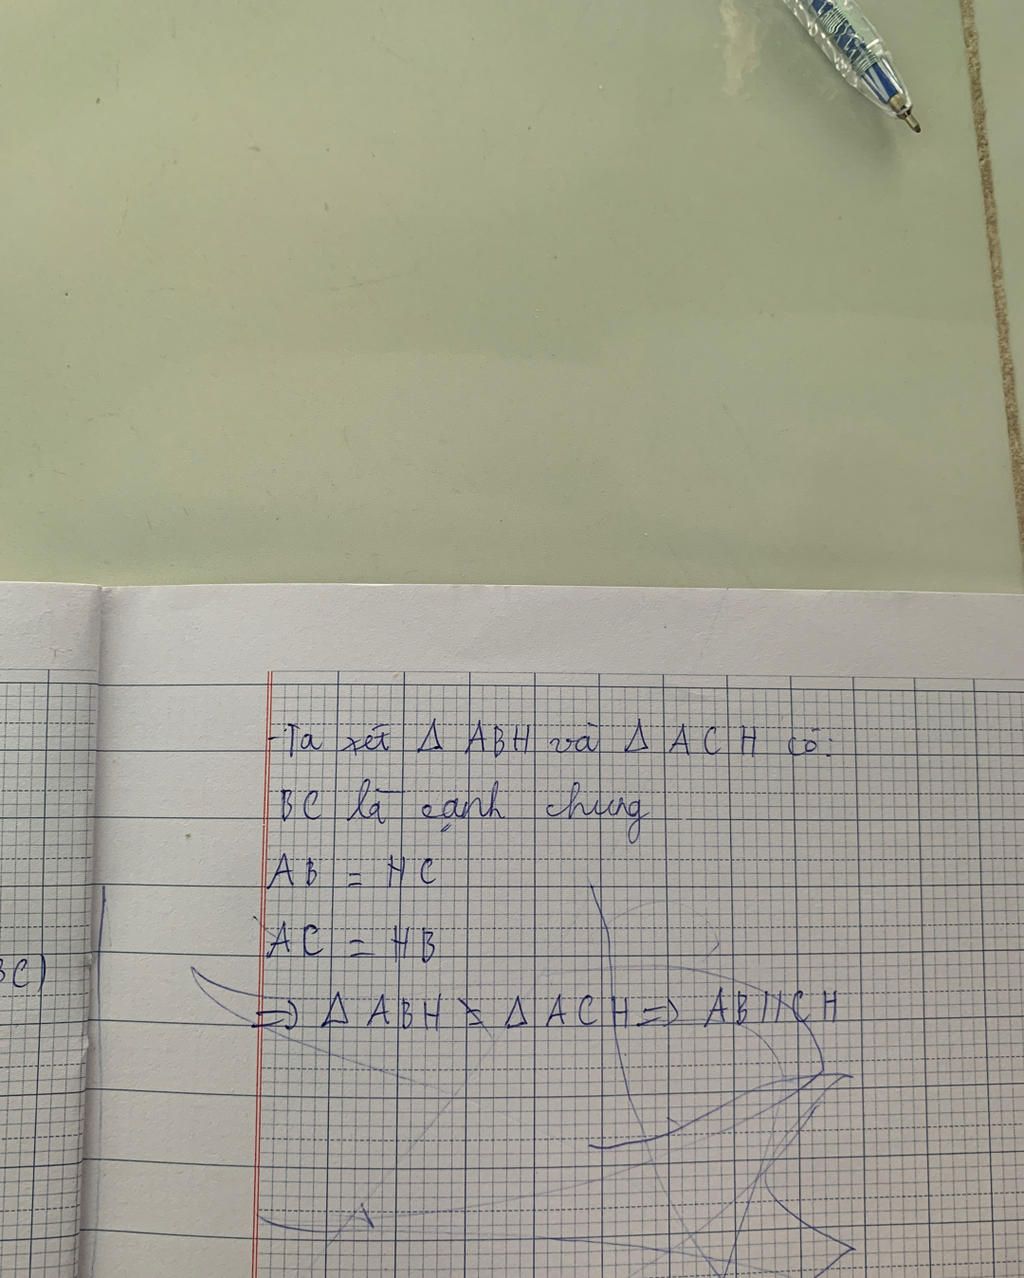 - Ta xét Δ ABH và Δ ACH có:
BC là cạnh chung
AB = HC
AC = HB
BC)
=> Δ ABH = Δ ACH => AB // CH